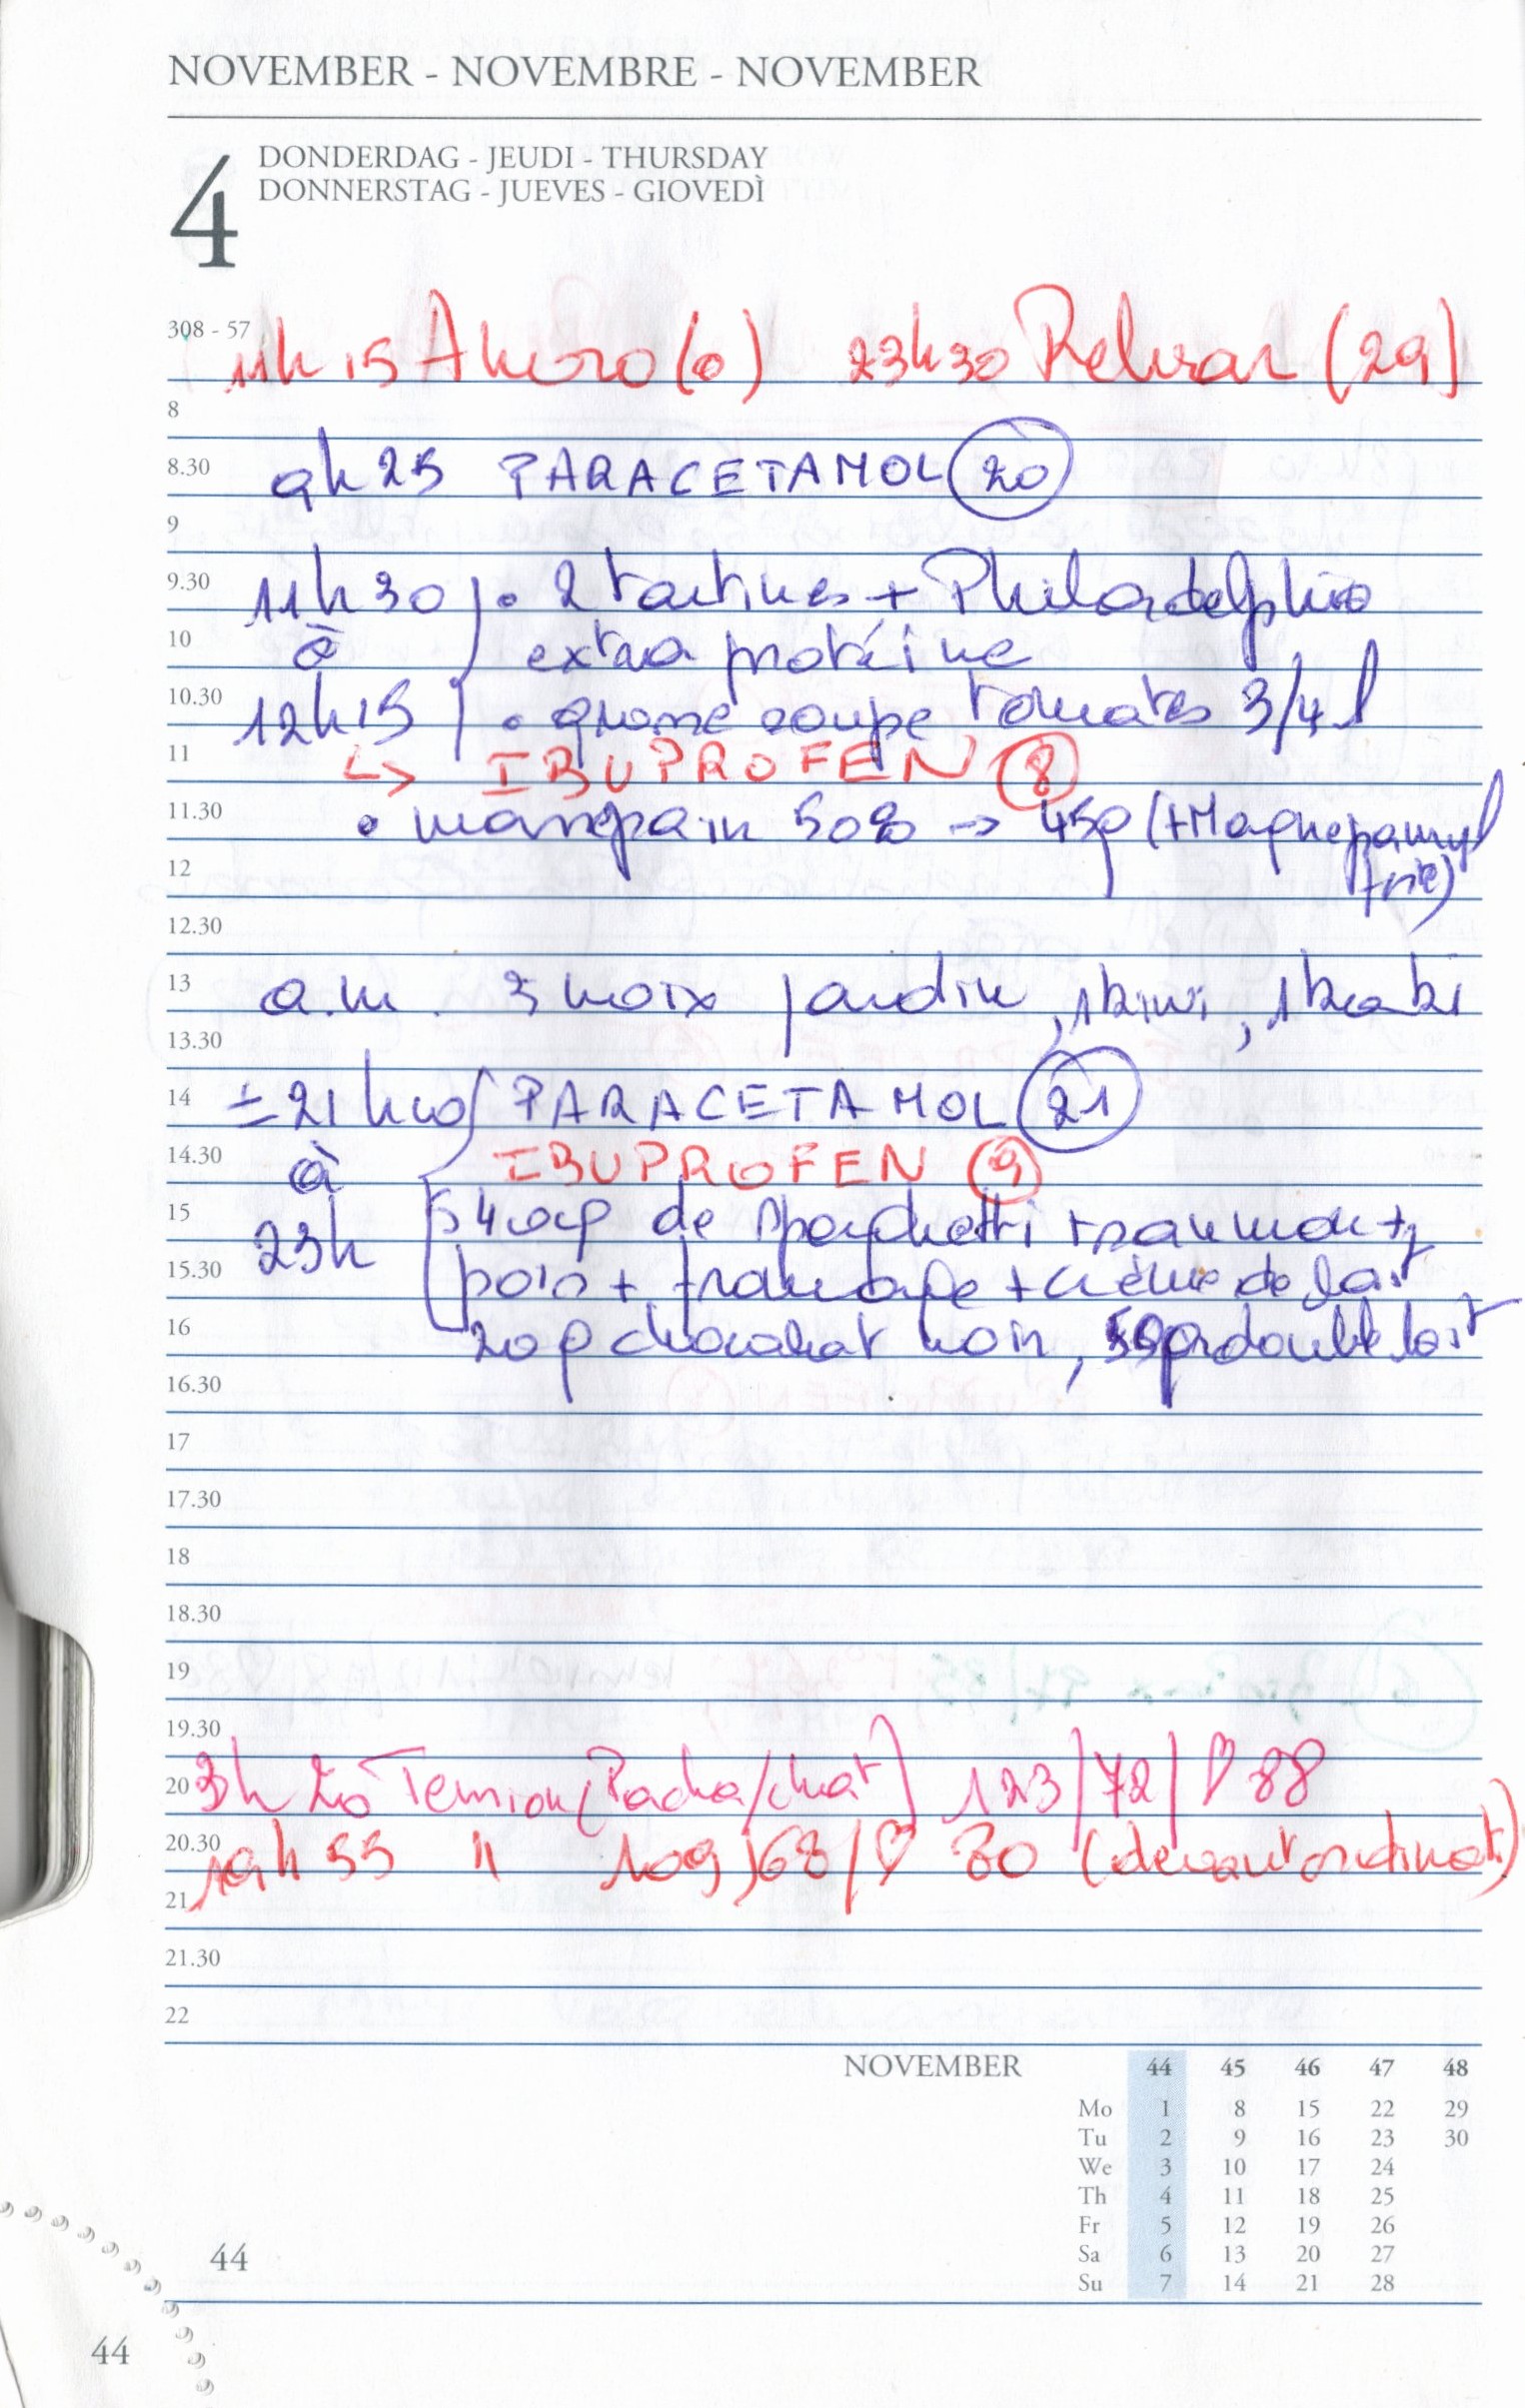 NOVEMBER - NOVEMBRE - NOVEMBER
4
DONDERDAG - JEUDI - THURSDAY
DONNERSTAG - JUEVES - GIOVEDÌ
308 - 57
11h15 (0) 23h30 Relvar (29)
8
8.30 9h25 PARACETAMOL 20
9
9.30 11h30 • 2 tartines + Philadelphia
10 à extra protéine
10.30 12h15 • soupe tomates 3/4 l
11 ↳ IBUPROFEN 8
11.30 • 50% → 45g (+Magnepamyl
12
12.30
13 a.m. 3 noix jardin, 1 kiwi, 1 kaki
13.30
14 ± 21h40 PARACETAMOL 21
14.30 à IBUPROFEN 9
15 23h de spaghetti + saumon +
15.30 pois + + crème de lait
16 20g chocolat noir, double lait
16.30
17
17.30
18
18.30
19
19.30
20 3h20 Tension (Pacha/chat) 123/72/♡ 88
20.30 19h55 " 109/68/♡ 80 (devant ordinat.)
21
21.30
22
NOVEMBER 44 45 46 47 48
Mo 1 8 15 22 29
Tu 2 9 16 23 30
We 3 10 17 24
Th 4 11 18 25
Fr 5 12 19 26
Sa 6 13 20 27
Su 7 14 21 28
44
44